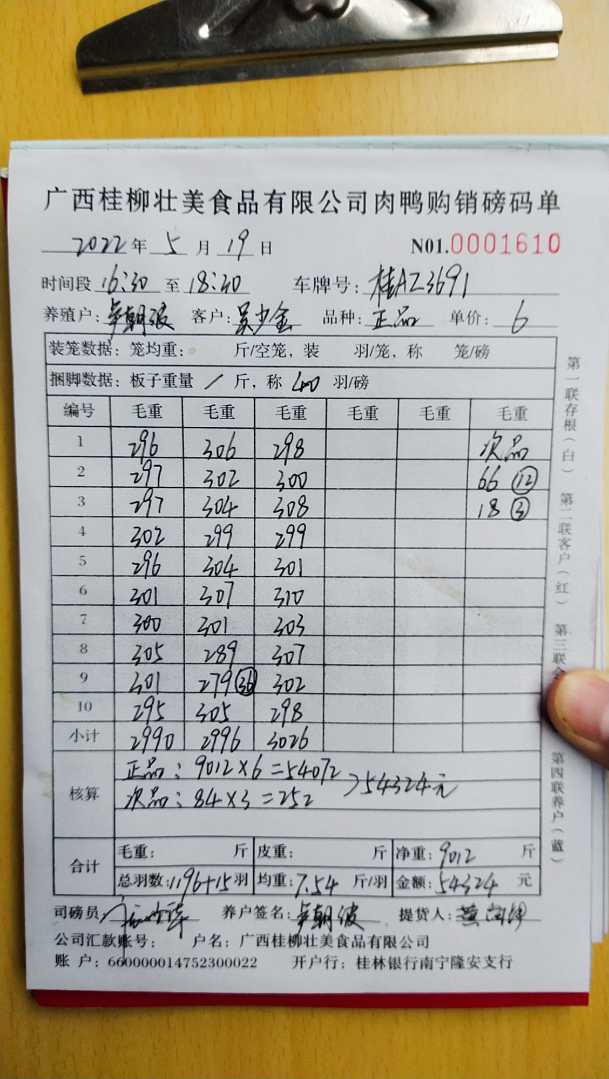 广西桂柳壮美食品有限公司肉鸭购销磅码单
2022年 5 月 19 日 N01.0001610
时间段 16:30 至 18:30 车牌号: 桂AZ3691
养殖户: 客户: 吴少金 品种: 正品 单价: 6
装笼数据: 笼均重: 斤/空笼, 装 羽/笼, 称 笼/磅
捆脚数据: 板子重量 / 斤, 称 羽/磅
编号 毛重 毛重 毛重 毛重 毛重 毛重
1 296 306 298 次品
2 297 302 300 66 ⑫
3 297 304 308 18 ③
4 302 299 299
5 296 304 301
6 301 307 310
7 300 301 303
8 305 289 307
9 301 279 ㊱ 302
10 295 305 298
小计 2990 2996 3026
核算 正品: 9012×6=54072
次品: 84×3=252 >54324元
合计 毛重: 斤 皮重: 斤 净重: 9012 斤
总羽数: 1196+15羽 均重: 7.54 斤/羽 金额: 54324 元
司磅员 养户签名: 提货人:
公司汇款账号: 户名: 广西桂柳壮美食品有限公司
账 户: 660000014752300022 开户行: 桂林银行南宁隆安支行
第一联存根(白) 第二联客户(红) 第三联 第四联养户(蓝)